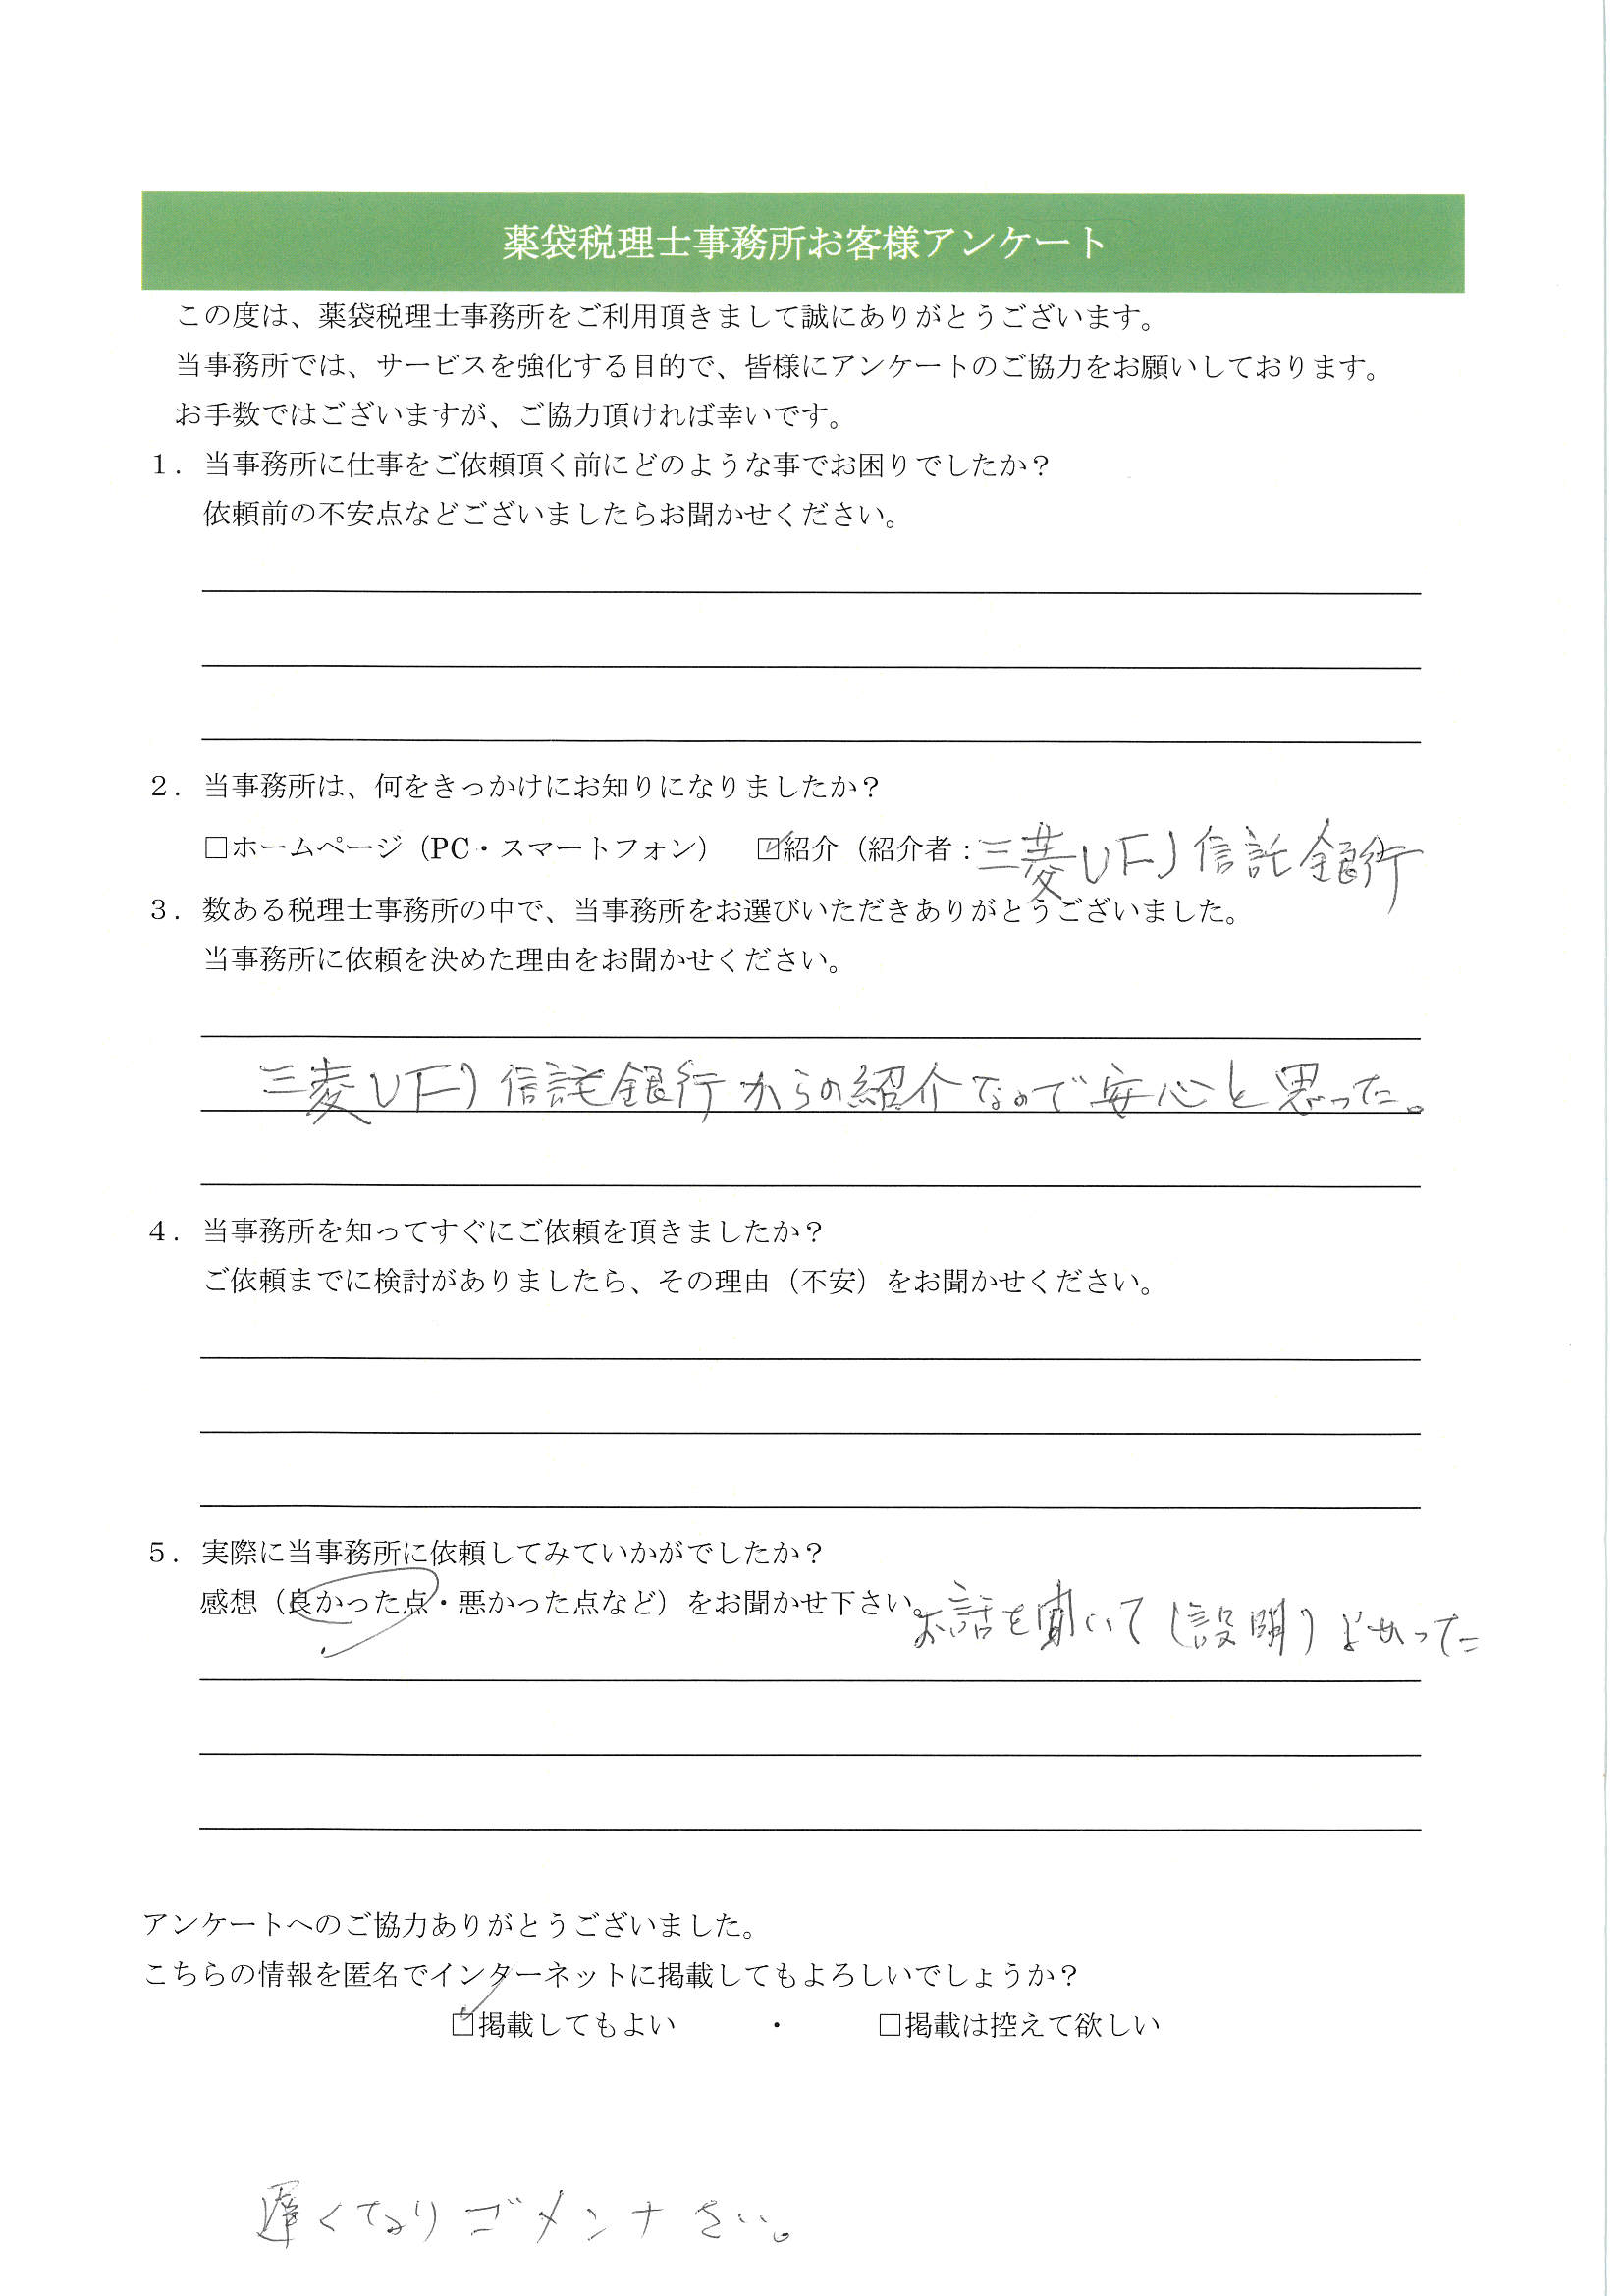 薬袋税理士事務所お客様アンケート
この度は、薬袋税理士事務所をご利用頂きまして誠にありがとうございます。
当事務所では、サービスを強化する目的で、皆様にアンケートのご協力をお願いしております。
お手数ではございますが、ご協力頂ければ幸いです。
1．当事務所に仕事をご依頼頂く前にどのような事でお困りでしたか？
依頼前の不安点などございましたらお聞かせください。
2．当事務所は、何をきっかけにお知りになりましたか？
□ホームページ（PC・スマートフォン） ☑紹介（紹介者：三菱UFJ信託銀行
3．数ある税理士事務所の中で、当事務所をお選びいただきありがとうございました。
当事務所に依頼を決めた理由をお聞かせください。
三菱UFJ信託銀行からの紹介なので安心と思った。
4．当事務所を知ってすぐにご依頼を頂きましたか？
ご依頼までに検討がありましたら、その理由（不安）をお聞かせください。
5．実際に当事務所に依頼してみていかがでしたか？
感想（良かった点・悪かった点など）をお聞かせ下さい。お話を聞いて（説明）よかった
アンケートへのご協力ありがとうございました。
こちらの情報を匿名でインターネットに掲載してもよろしいでしょうか？
☑掲載してもよい ・ □掲載は控えて欲しい
遅くなりゴメンナさい。